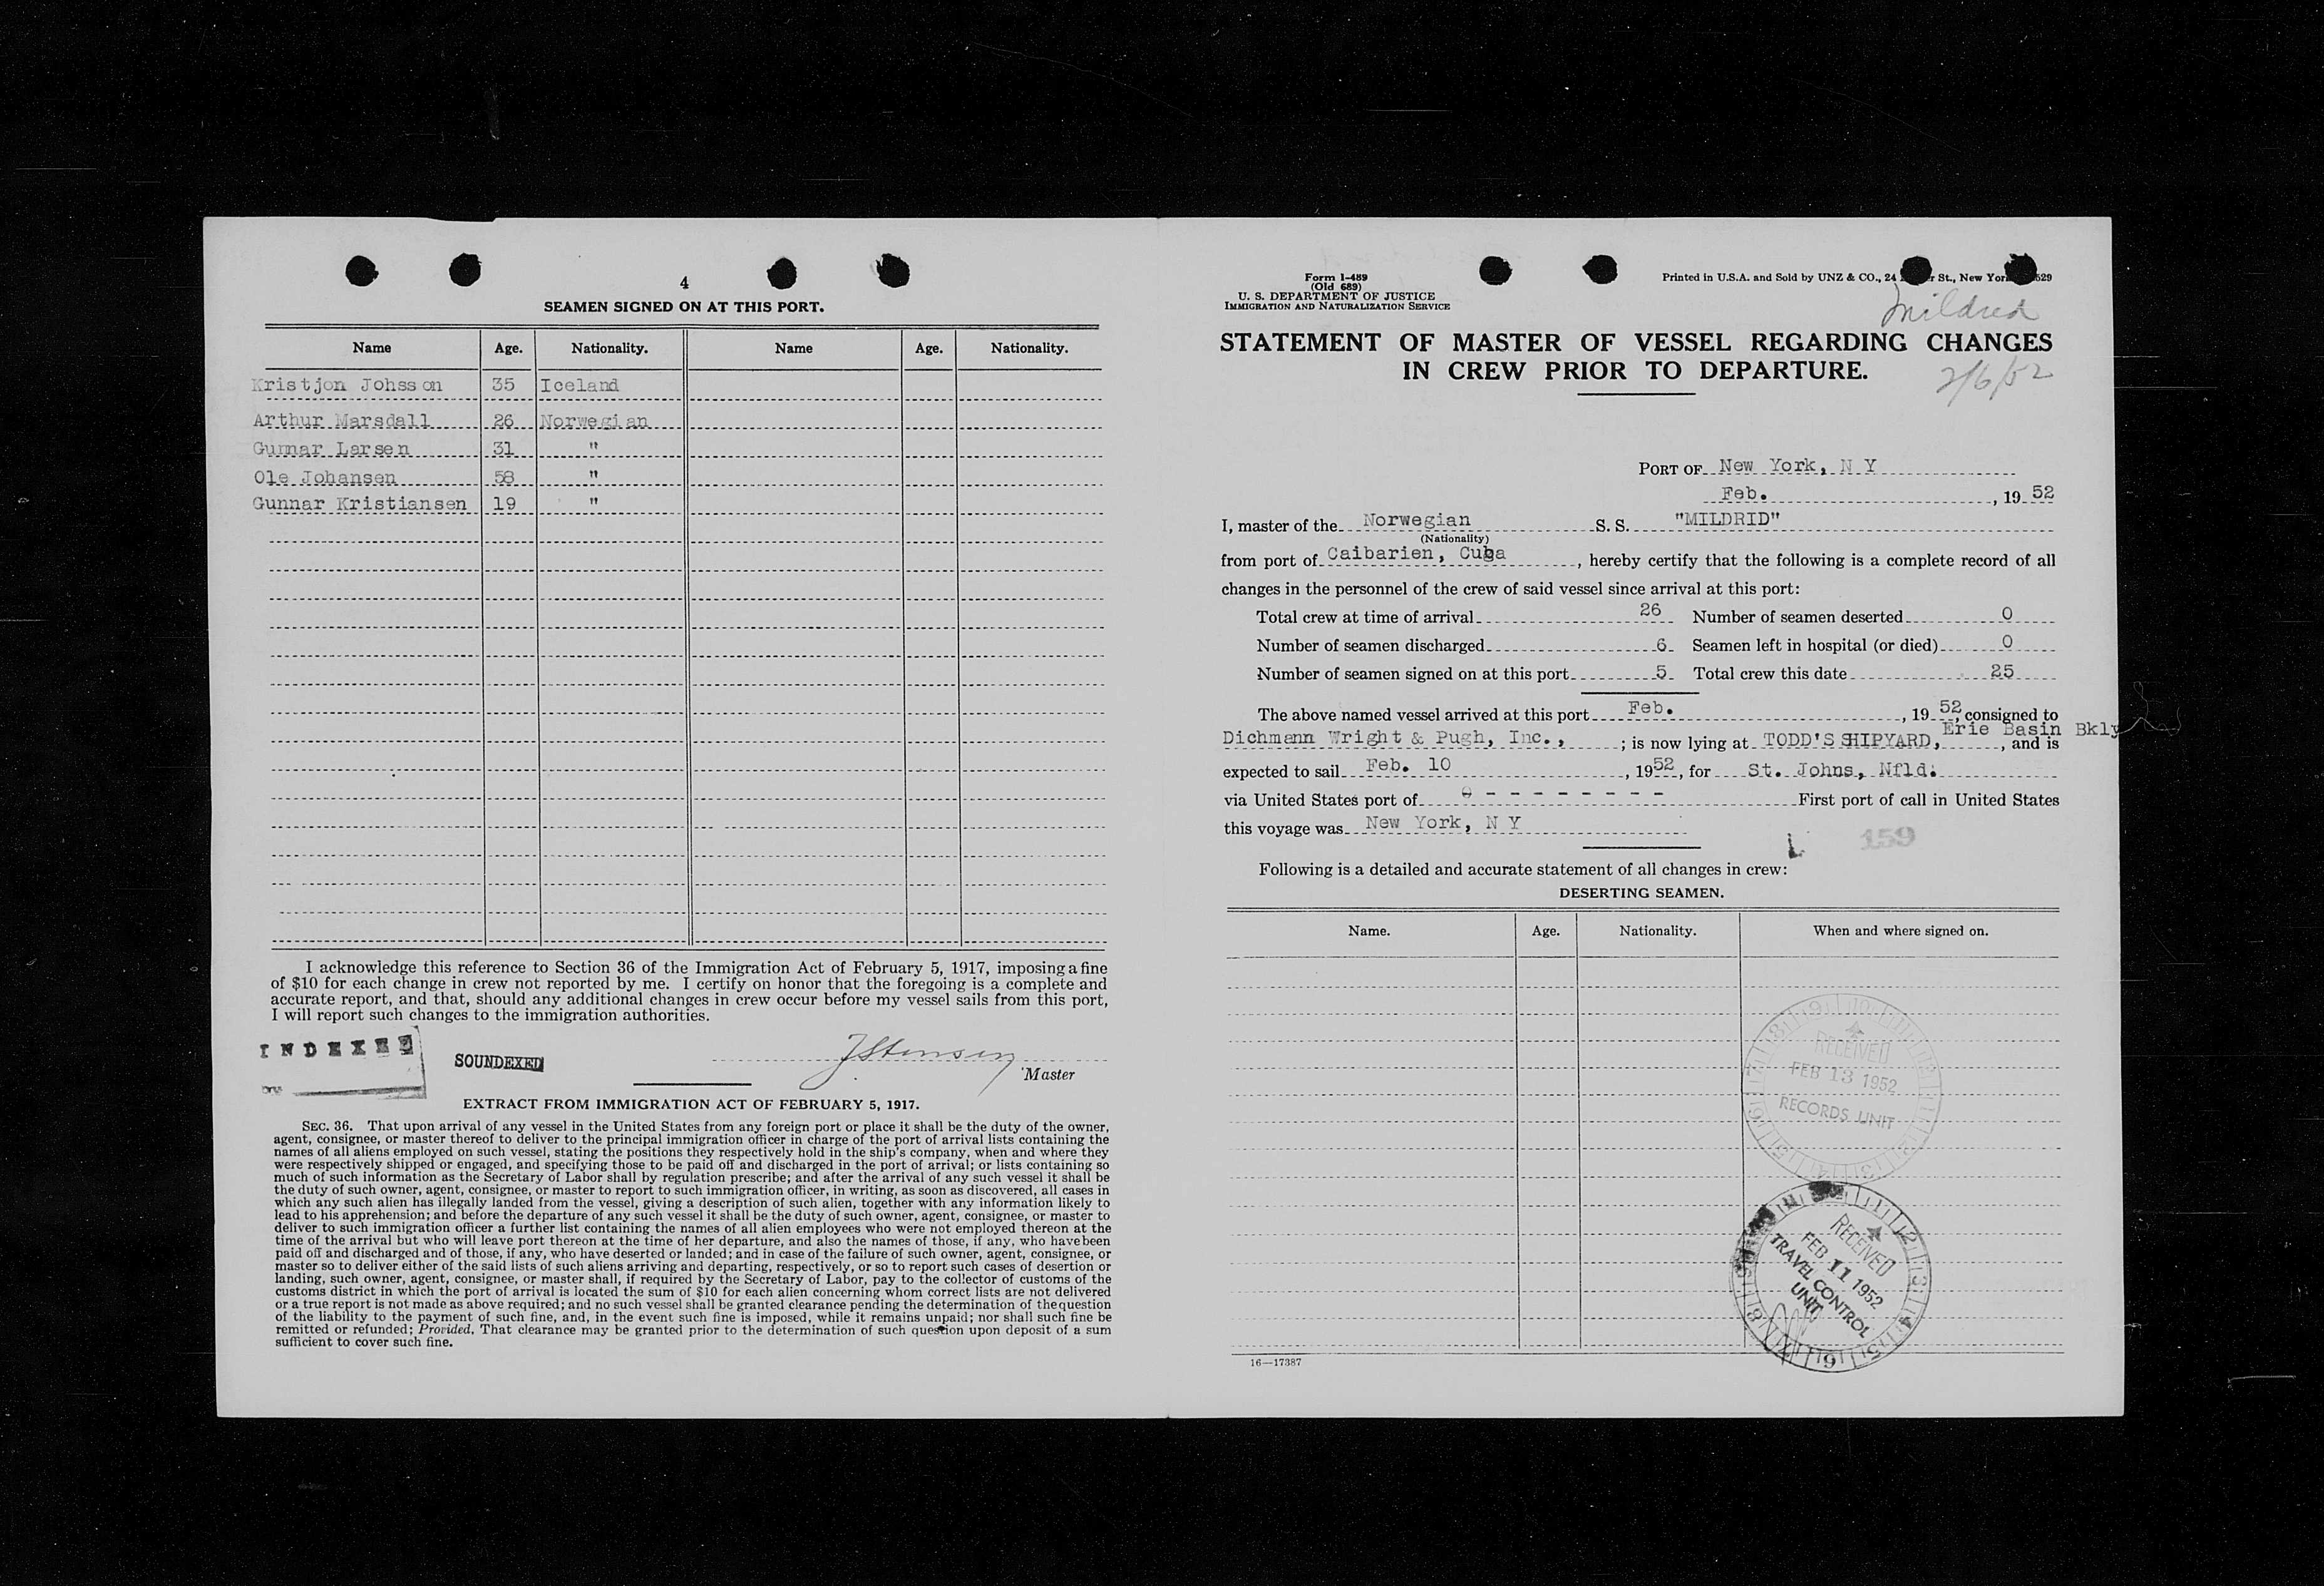 4
SEAMEN SIGNED ON AT THIS PORT.
Name Age. Nationality. Name Age. Nationality.
Kristjon Johsson 35 Iceland
Arthur Marsdall 26 Norwegian
Gunnar Larsen 31 "
Ole Johansen 58 "
Gunnar Kristiansen 19 "
I acknowledge this reference to Section 36 of the Immigration Act of February 5, 1917, imposing a fine
of $10 for each change in crew not reported by me. I certify on honor that the foregoing is a complete and
accurate report, and that, should any additional changes in crew occur before my vessel sails from this port,
I will report such changes to the immigration authorities.
INDEXED
SOUNDEXED
Master
EXTRACT FROM IMMIGRATION ACT OF FEBRUARY 5, 1917.
SEC. 36. That upon arrival of any vessel in the United States from any foreign port or place it shall be the duty of the owner,
agent, consignee, or master thereof to deliver to the principal immigration officer in charge of the port of arrival lists containing the
names of all aliens employed on such vessel, stating the positions they respectively hold in the ship's company, when and where they
were respectively shipped or engaged, and specifying those to be paid off and discharged in the port of arrival; or lists containing so
much of such information as the Secretary of Labor shall by regulation prescribe; and after the arrival of any such vessel it shall be
the duty of such owner, agent, consignee, or master to report to such immigration officer, in writing, as soon as discovered, all cases in
which any such alien has illegally landed from the vessel, giving a description of such alien, together with any information likely to
lead to his apprehension; and before the departure of any such vessel it shall be the duty of such owner, agent, consignee, or master to
deliver to such immigration officer a further list containing the names of all alien employees who were not employed thereon at the
time of the arrival but who will leave port thereon at the time of her departure, and also the names of those, if any, who have been
paid off and discharged and of those, if any, who have deserted or landed; and in case of the failure of such owner, agent, consignee, or
master so to deliver either of the said lists of such aliens arriving and departing, respectively, or so to report such cases of desertion or
landing, such owner, agent, consignee, or master shall, if required by the Secretary of Labor, pay to the collector of customs of the
customs district in which the port of arrival is located the sum of $10 for each alien concerning whom correct lists are not delivered
or a true report is not made as above required; and no such vessel shall be granted clearance pending the determination of the question
of the liability to the payment of such fine, and, in the event such fine is imposed, while it remains unpaid; nor shall such fine be
remitted or refunded; Provided, That clearance may be granted prior to the determination of such question upon deposit of a sum
sufficient to cover such fine.
Form I-489
(Old 689)
U. S. DEPARTMENT OF JUSTICE
IMMIGRATION AND NATURALIZATION SERVICE
Printed in U.S.A. and Sold by UNZ & CO., 24 St., New York 529
Mildred
STATEMENT OF MASTER OF VESSEL REGARDING CHANGES
IN CREW PRIOR TO DEPARTURE.
2/6/52
PORT OF New York, N Y
Feb. , 19 52
I, master of the Norwegian S. S. "MILDRID"
(Nationality)
from port of Caibarien, Cuba , hereby certify that the following is a complete record of all
changes in the personnel of the crew of said vessel since arrival at this port:
Total crew at time of arrival 26 Number of seamen deserted 0
Number of seamen discharged 6 Seamen left in hospital (or died) 0
Number of seamen signed on at this port 5 Total crew this date 25
The above named vessel arrived at this port Feb. , 19 52, consigned to
Dichmann Wright & Pugh, Inc., ; is now lying at TODD'S SHIPYARD, Erie Basin Bkly , and is
expected to sail Feb. 10 , 1952, for St. Johns, Nfld.
via United States port of - - - - - - - - First port of call in United States
this voyage was New York, N Y
159
Following is a detailed and accurate statement of all changes in crew:
DESERTING SEAMEN.
Name. Age. Nationality. When and where signed on.
RECEIVED
FEB 13 1952
RECORDS UNIT
RECEIVED
FEB 11 1952
TRAVEL CONTROL
UNIT
16—17387